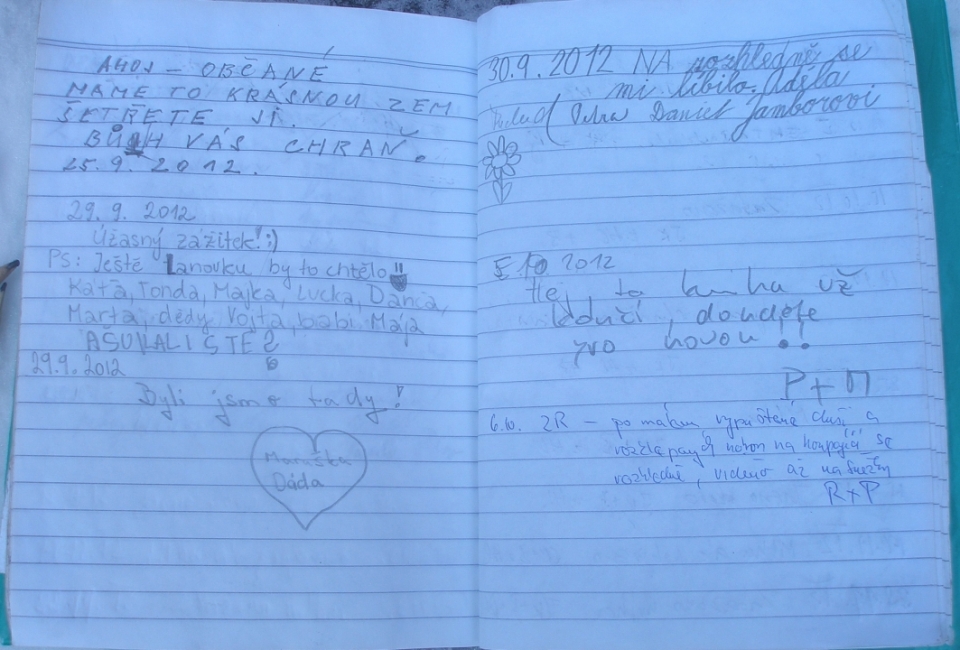 AHOJ – OBČANÉ
MÁME TO KRÁSNOU ZEM
ŠETŘETE JÍ.
BŮH VÁS CHRAŇ.
25.9.2012.
29. 9. 2012
Úžasný zážitek! :)
PS: Ještě Lanovku by to chtělo
Káťa, Tonda, Majka, Lucka, Danča,
Marta, dědy Vojta, babi Mája
29.9.2012
Byli jsme tady!
Maruška
Dáda
30.9.2012 NA rozhledně se
mi líbilo. Adéla
Petra Daniel Jamborovi
5.10 2012
Hej, ta kniha už
končí, donděte
pro novou!!
P + M
6.10. 2R – po málem vypuštěné duši a
rozhledně, viděno až na Sněžku
R + P